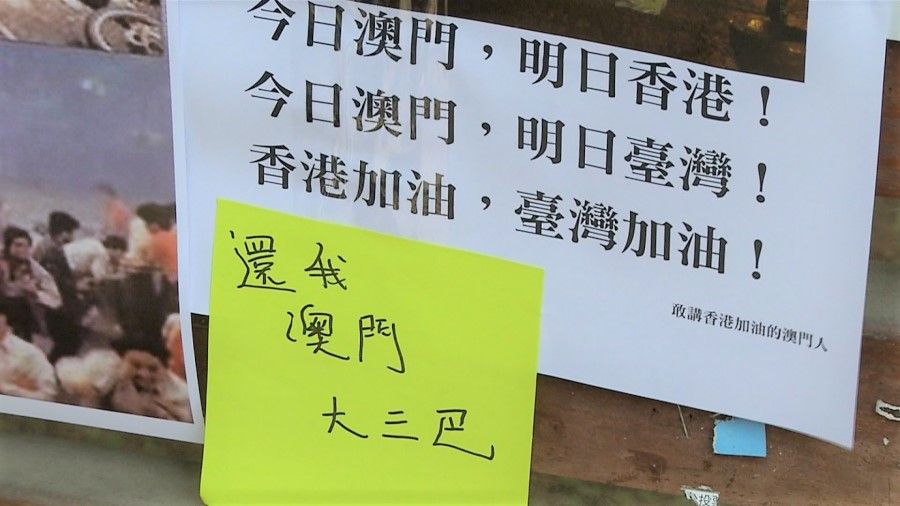 今日澳門，明日香港！
今日澳門，明日臺灣！
香港加油，臺灣加油！
敢講香港加油的澳門人
還我
澳門
大三巴